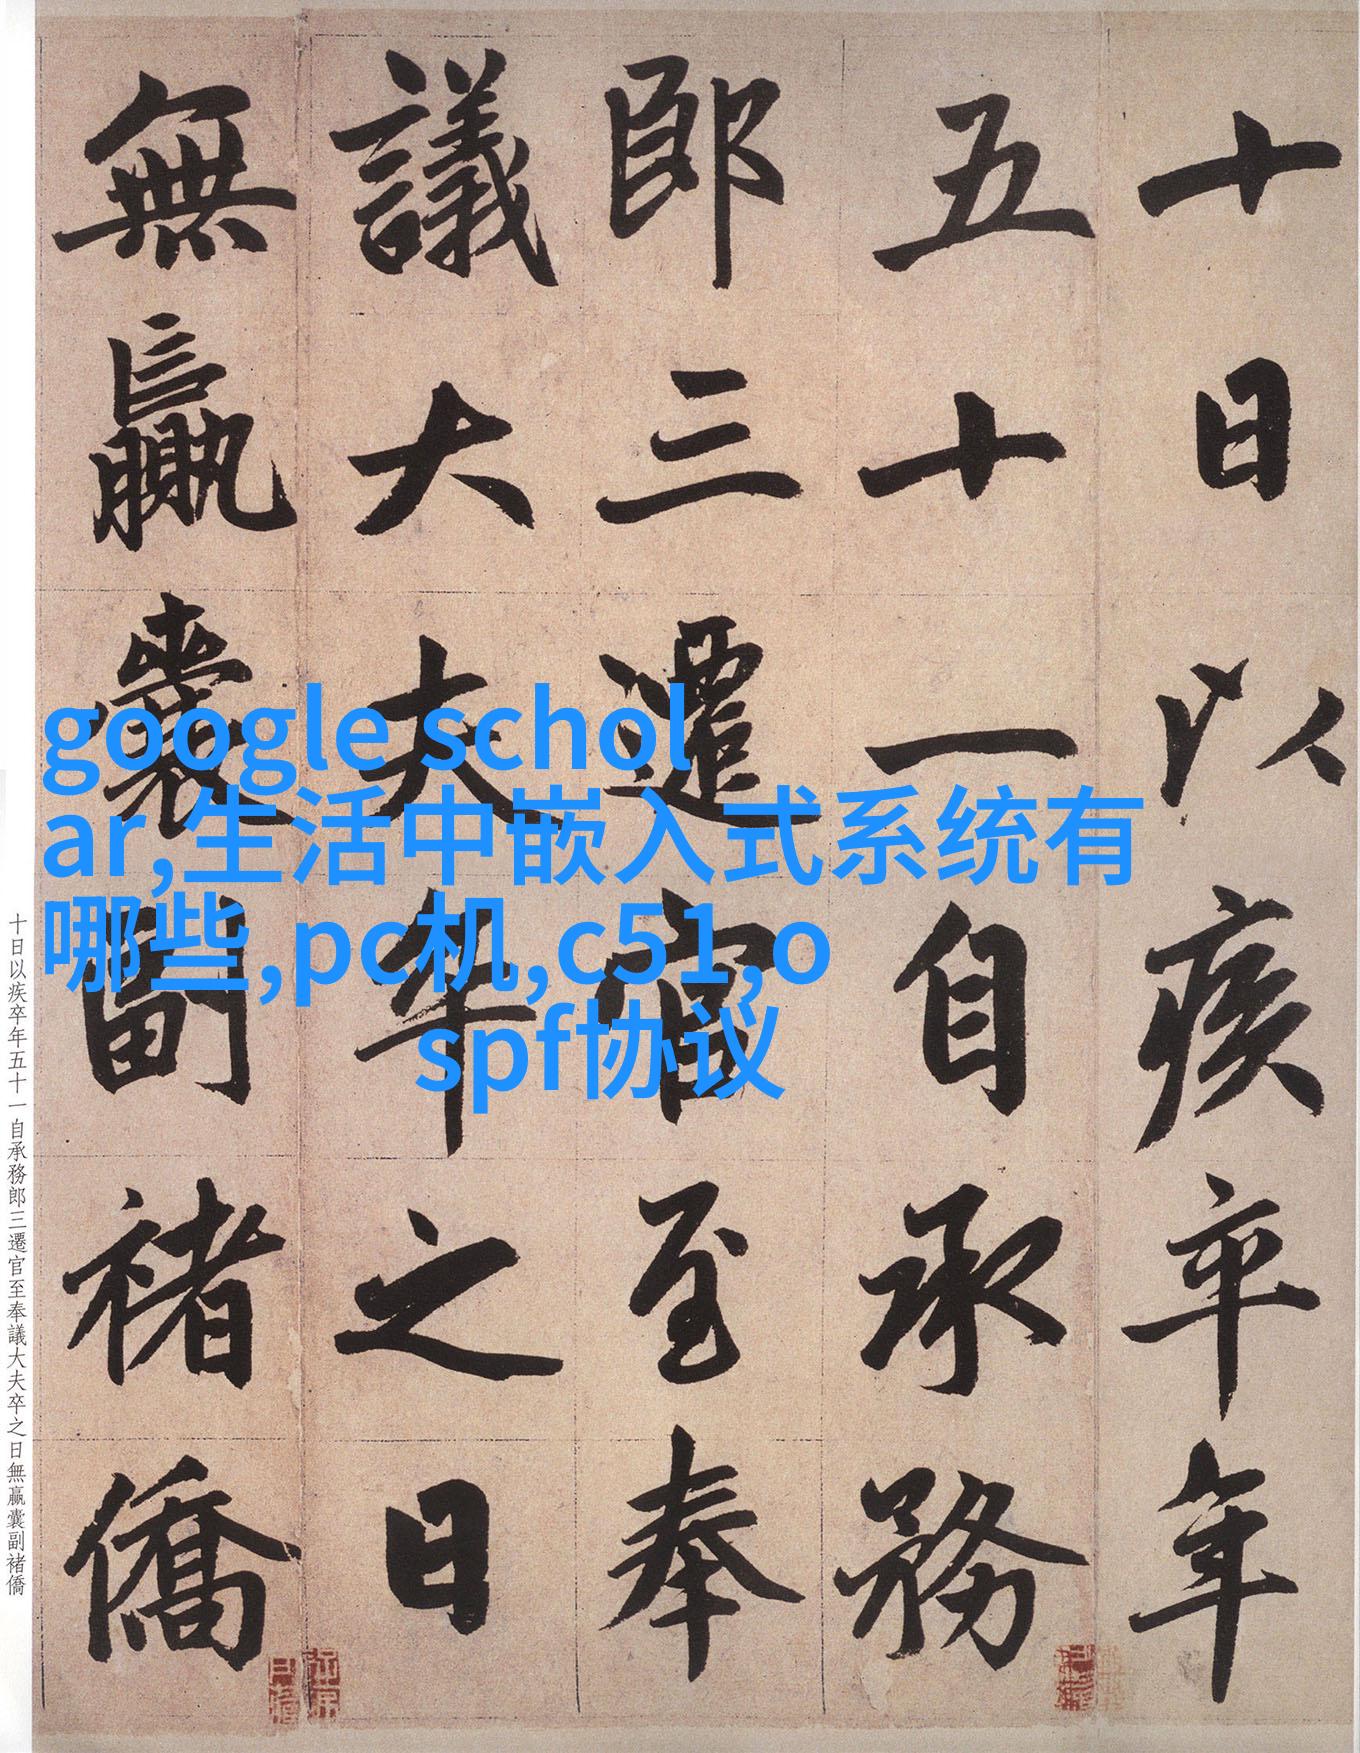 十日以疾卒年
五十一自承務
郎三遷官至奉
議大夫卒之日
無贏囊副褚僑
google schol
ar,生活中嵌入式系统有
哪些,pc机,c51,o
spf协议
十日以疾卒年五十一自承務郎三遷官至奉議大夫卒之日無贏囊副褚僑